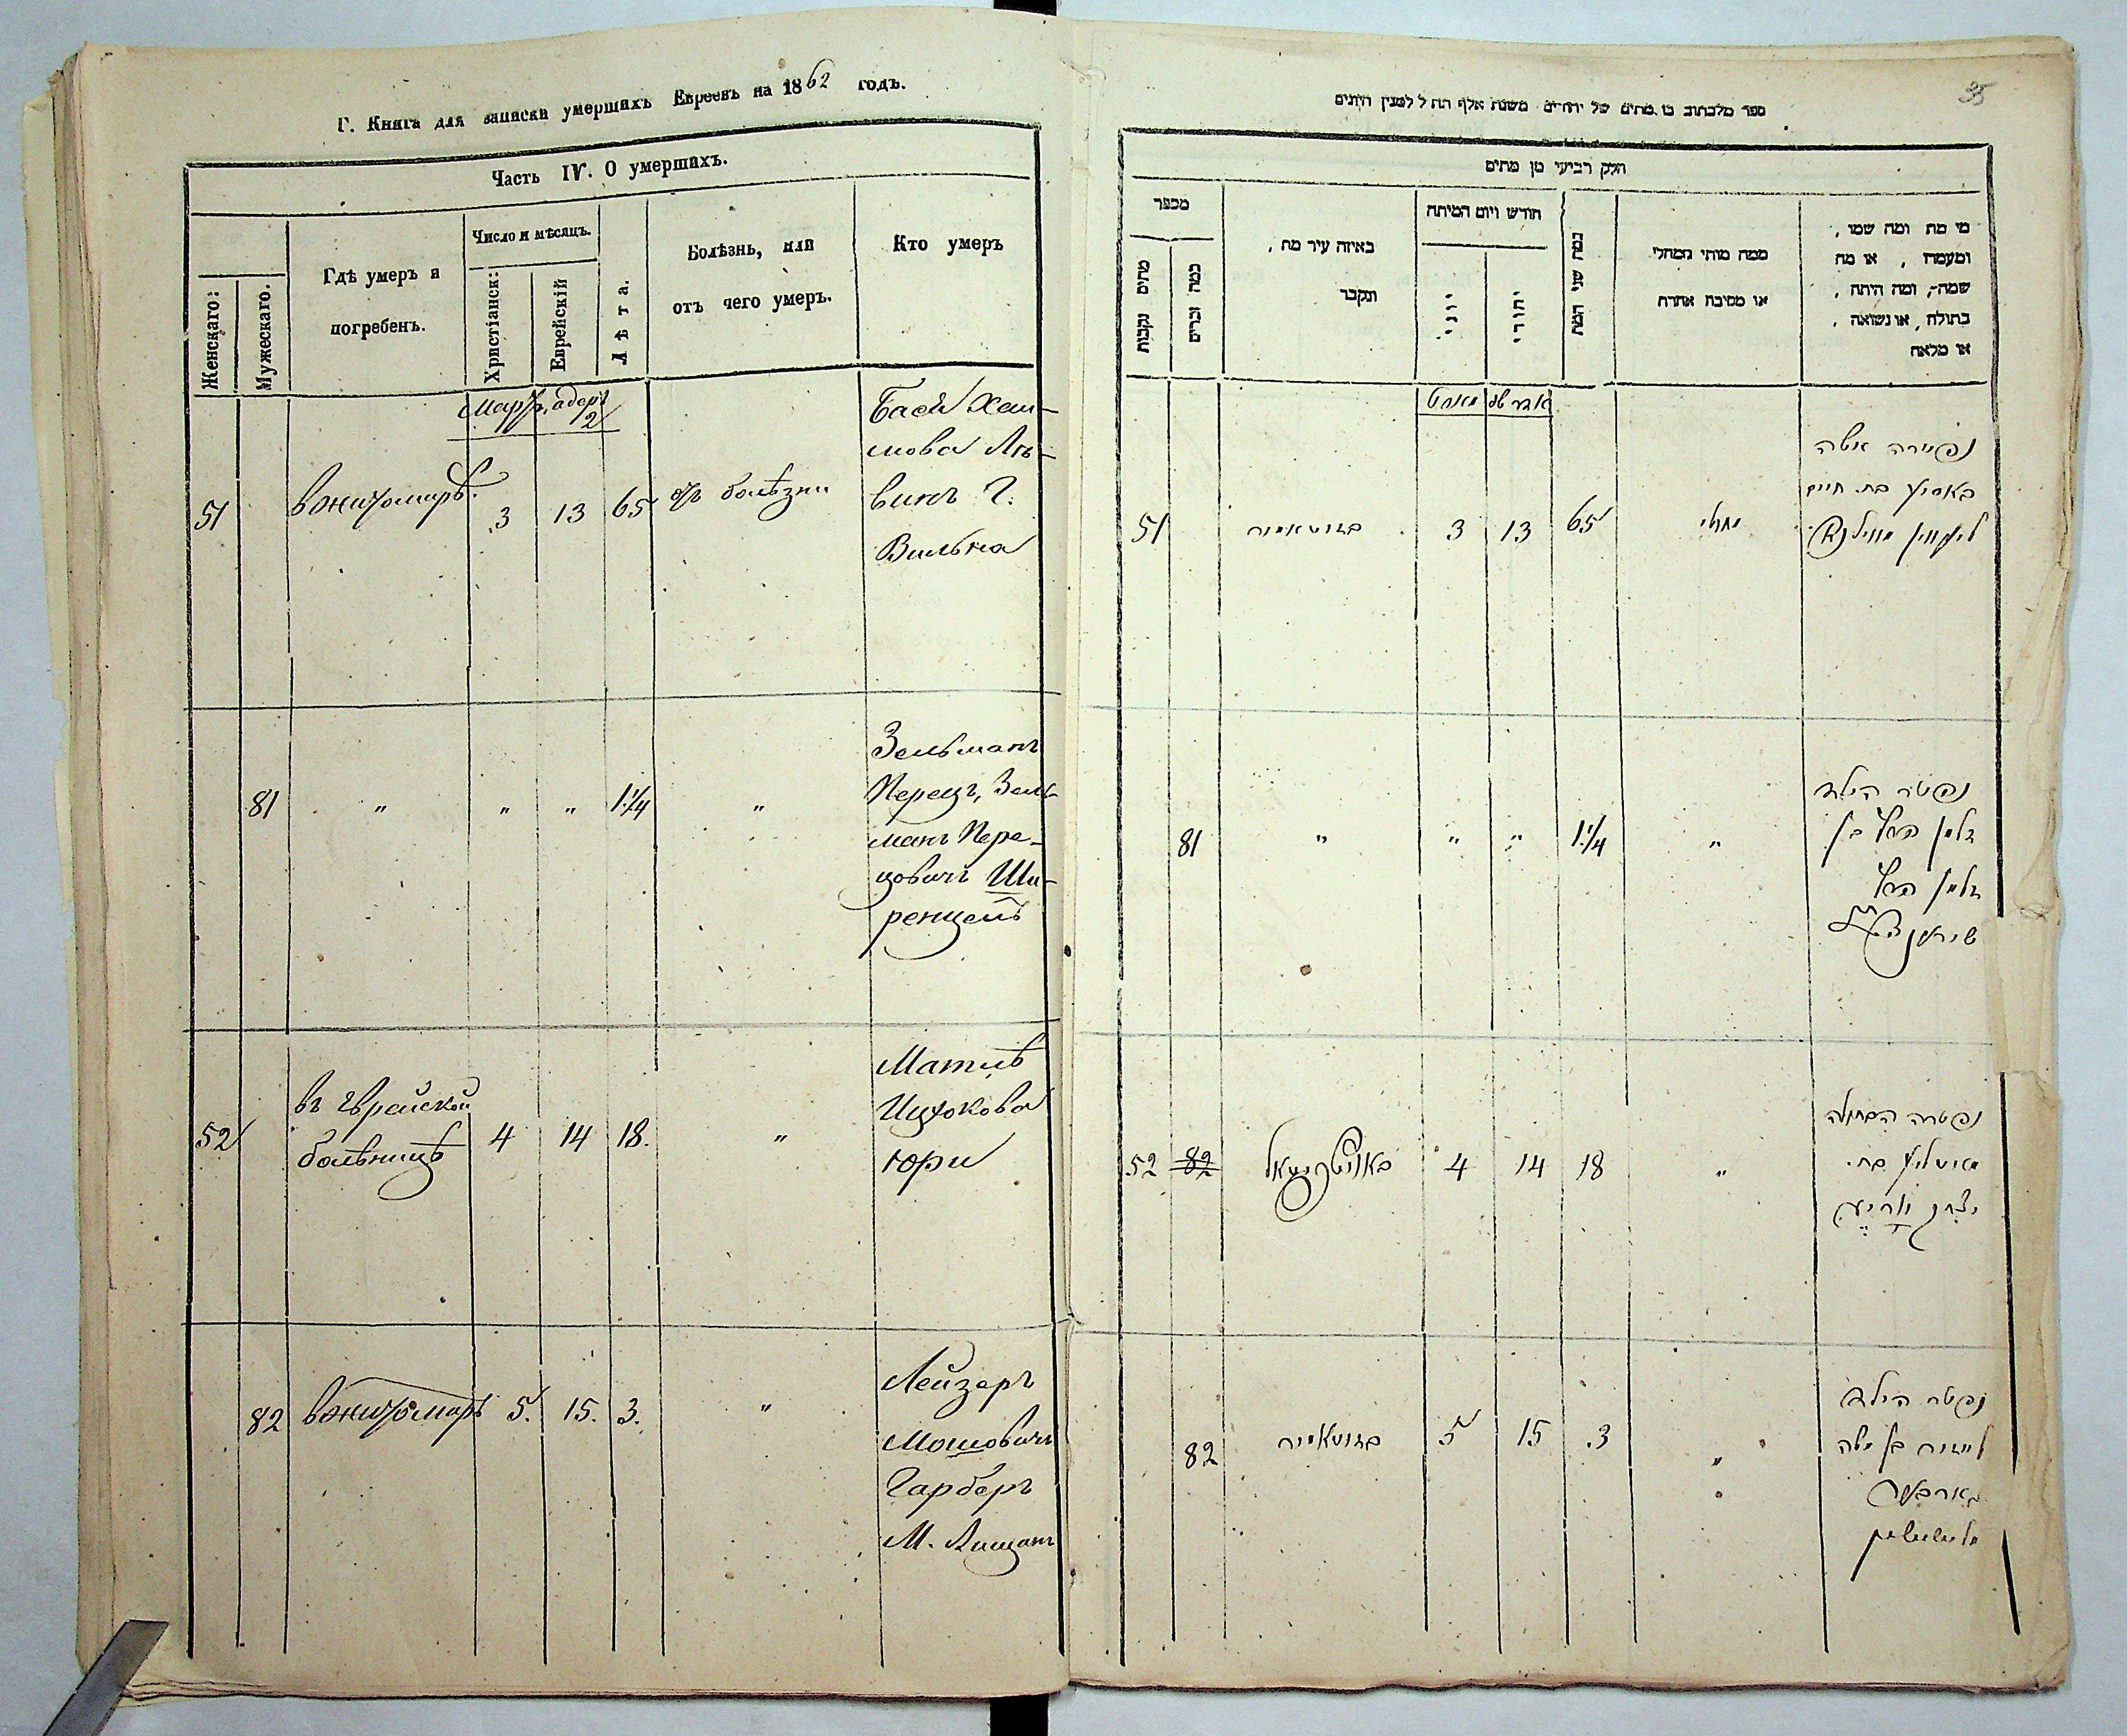 Г. Книга для записки умершихъ Евреевъ на 1862 годъ.
Часть IV. О умершихъ.
Женскаго:
Мужескаго.
Гдѣ умеръ и
погребенъ.
Число и мѣсяцъ.
Христіанск:
Еврейскій
Лѣта.
Болѣзнь, или
отъ чего умеръ.
Кто умеръ
Мартъ, адаръ
2
51
в Житомирѣ.
3
13
65
отъ болѣзни
Бася Хаи-
мова Ле-
винъ Г.
Вильна
81
"
"
"
1 1/4
"
Зельманъ
Перецъ, Зель-
манъ Пере-
цовичъ Ши-
ренцель
52
въ Еврейской
больницѣ
4
14
18.
"
Матлѣ
Ицкокова
Юри
82
в Житомирѣ
5.
15.
3.
"
Лейзеръ
Мошовичъ
Гарберъ
35
חלק רביעי מן מתים
מספר
מתים נקבות
כמה זכרים
באיזה עיר מת,
ונקבר
חודש ויום המיתה
יווני
יהודי
כמה שני המת
ממה מותו ממחלי
או מסיבה אחרת
מי מת ומה שמו,
ומעמדו, או מה
שמה, ומה היתה,
בתולה, או נשואה,
או מלאה
51
בזיטאמיר
3
13
65
נפטרה אשה
באסיע בת חיים
81
"
"
"
1 1/4
"
נפטר הילד
זלמן פרץ בן
זלמן פרץ
52
82
4
14
18
"
נפטרה הבתולה
מאטליע בת
יצחק
82
בזיטאמיר
5
15
3
"
נפטר הילד
לייזער בן משה
גארבער